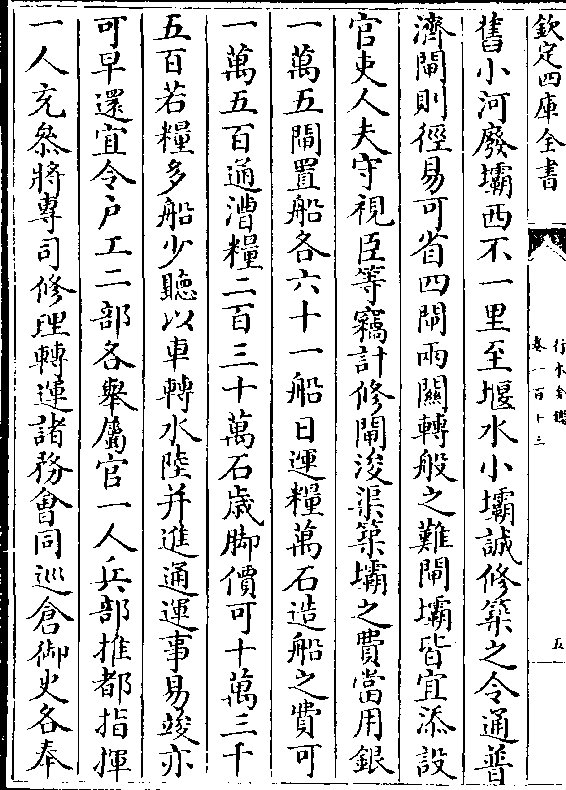 欽定四庫全書
行水金鑑
卷一百十三
五
舊小河廢壩西不一里至堰水小壩誠修築之令通普
濟閘則徑易可省四閘兩關轉般之難閘壩皆宜添設
官吏人夫守視臣等竊計修閘浚渠築壩之費當用銀
一萬五閘置船各六十一船日運糧萬石造船之費可
一萬五百通漕糧二百三十萬石歲脚價可十萬三千
五百若糧多船少聽以車轉水陸并進通運事易竣亦
可早還宜令户工二部各舉屬官一人兵部推都指揮
一人充叅將專司修理轉運諸務會同巡倉御史各奉